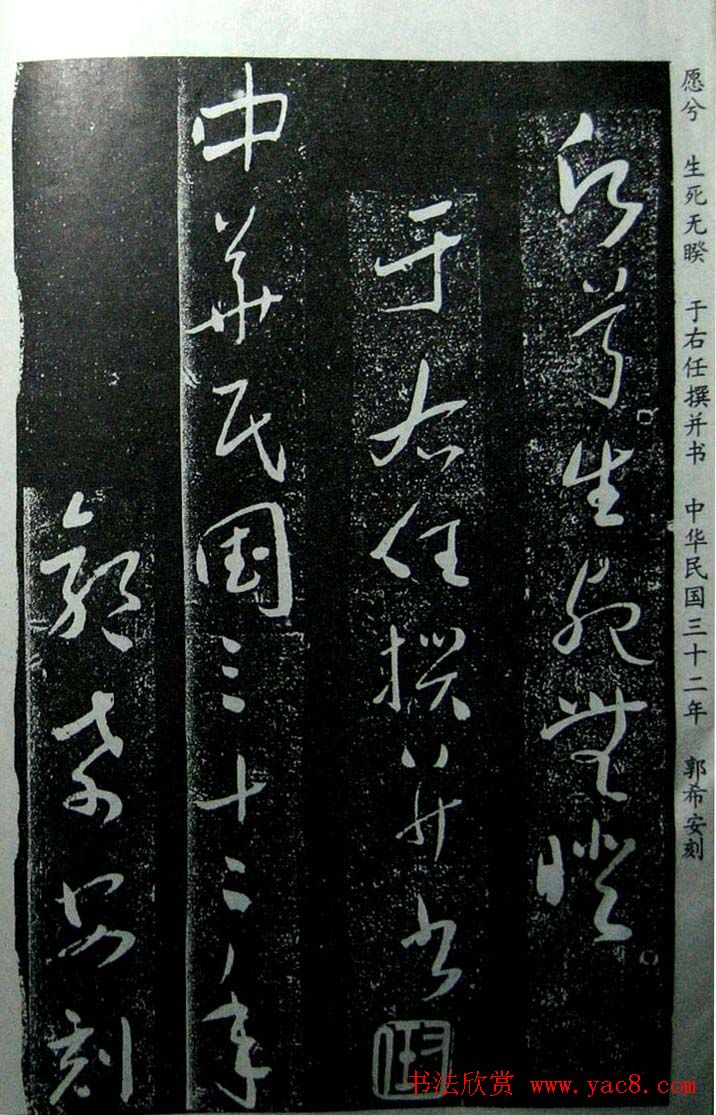 愿兮 生死无睽 于右任撰并书 中华民国三十二年 郭希安刻
兮生死無睽
于右任撰并书
中華民国三十二年
郭希安刻
书法欣赏 www.yac8.com